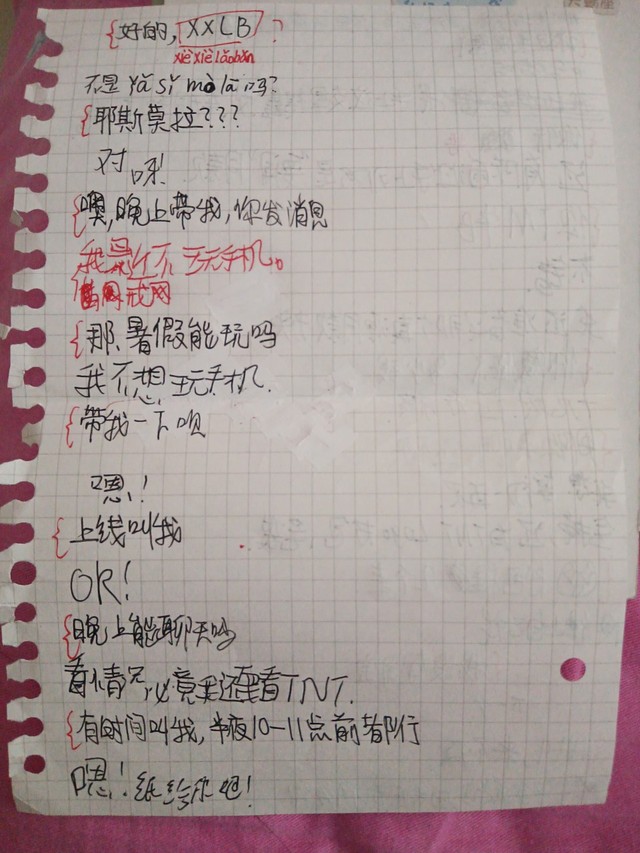 {好的, XXLB?
xiè xiè lǎobǎn
不是 Yǎ sī mò lā 吗?
{耶斯莫拉???
对呀!
{噢,晚上带我,你发消息
我最近不玩手机。
戒网
{那、暑假能玩吗
我不想玩手机.
{带我一下呗
嗯!
{上线叫我
OR!
{晚上能聊天吗
看情况,必竟我还要看TNT.
{有时间叫我,半夜10-11点前都行
嗯!纸给你吧!